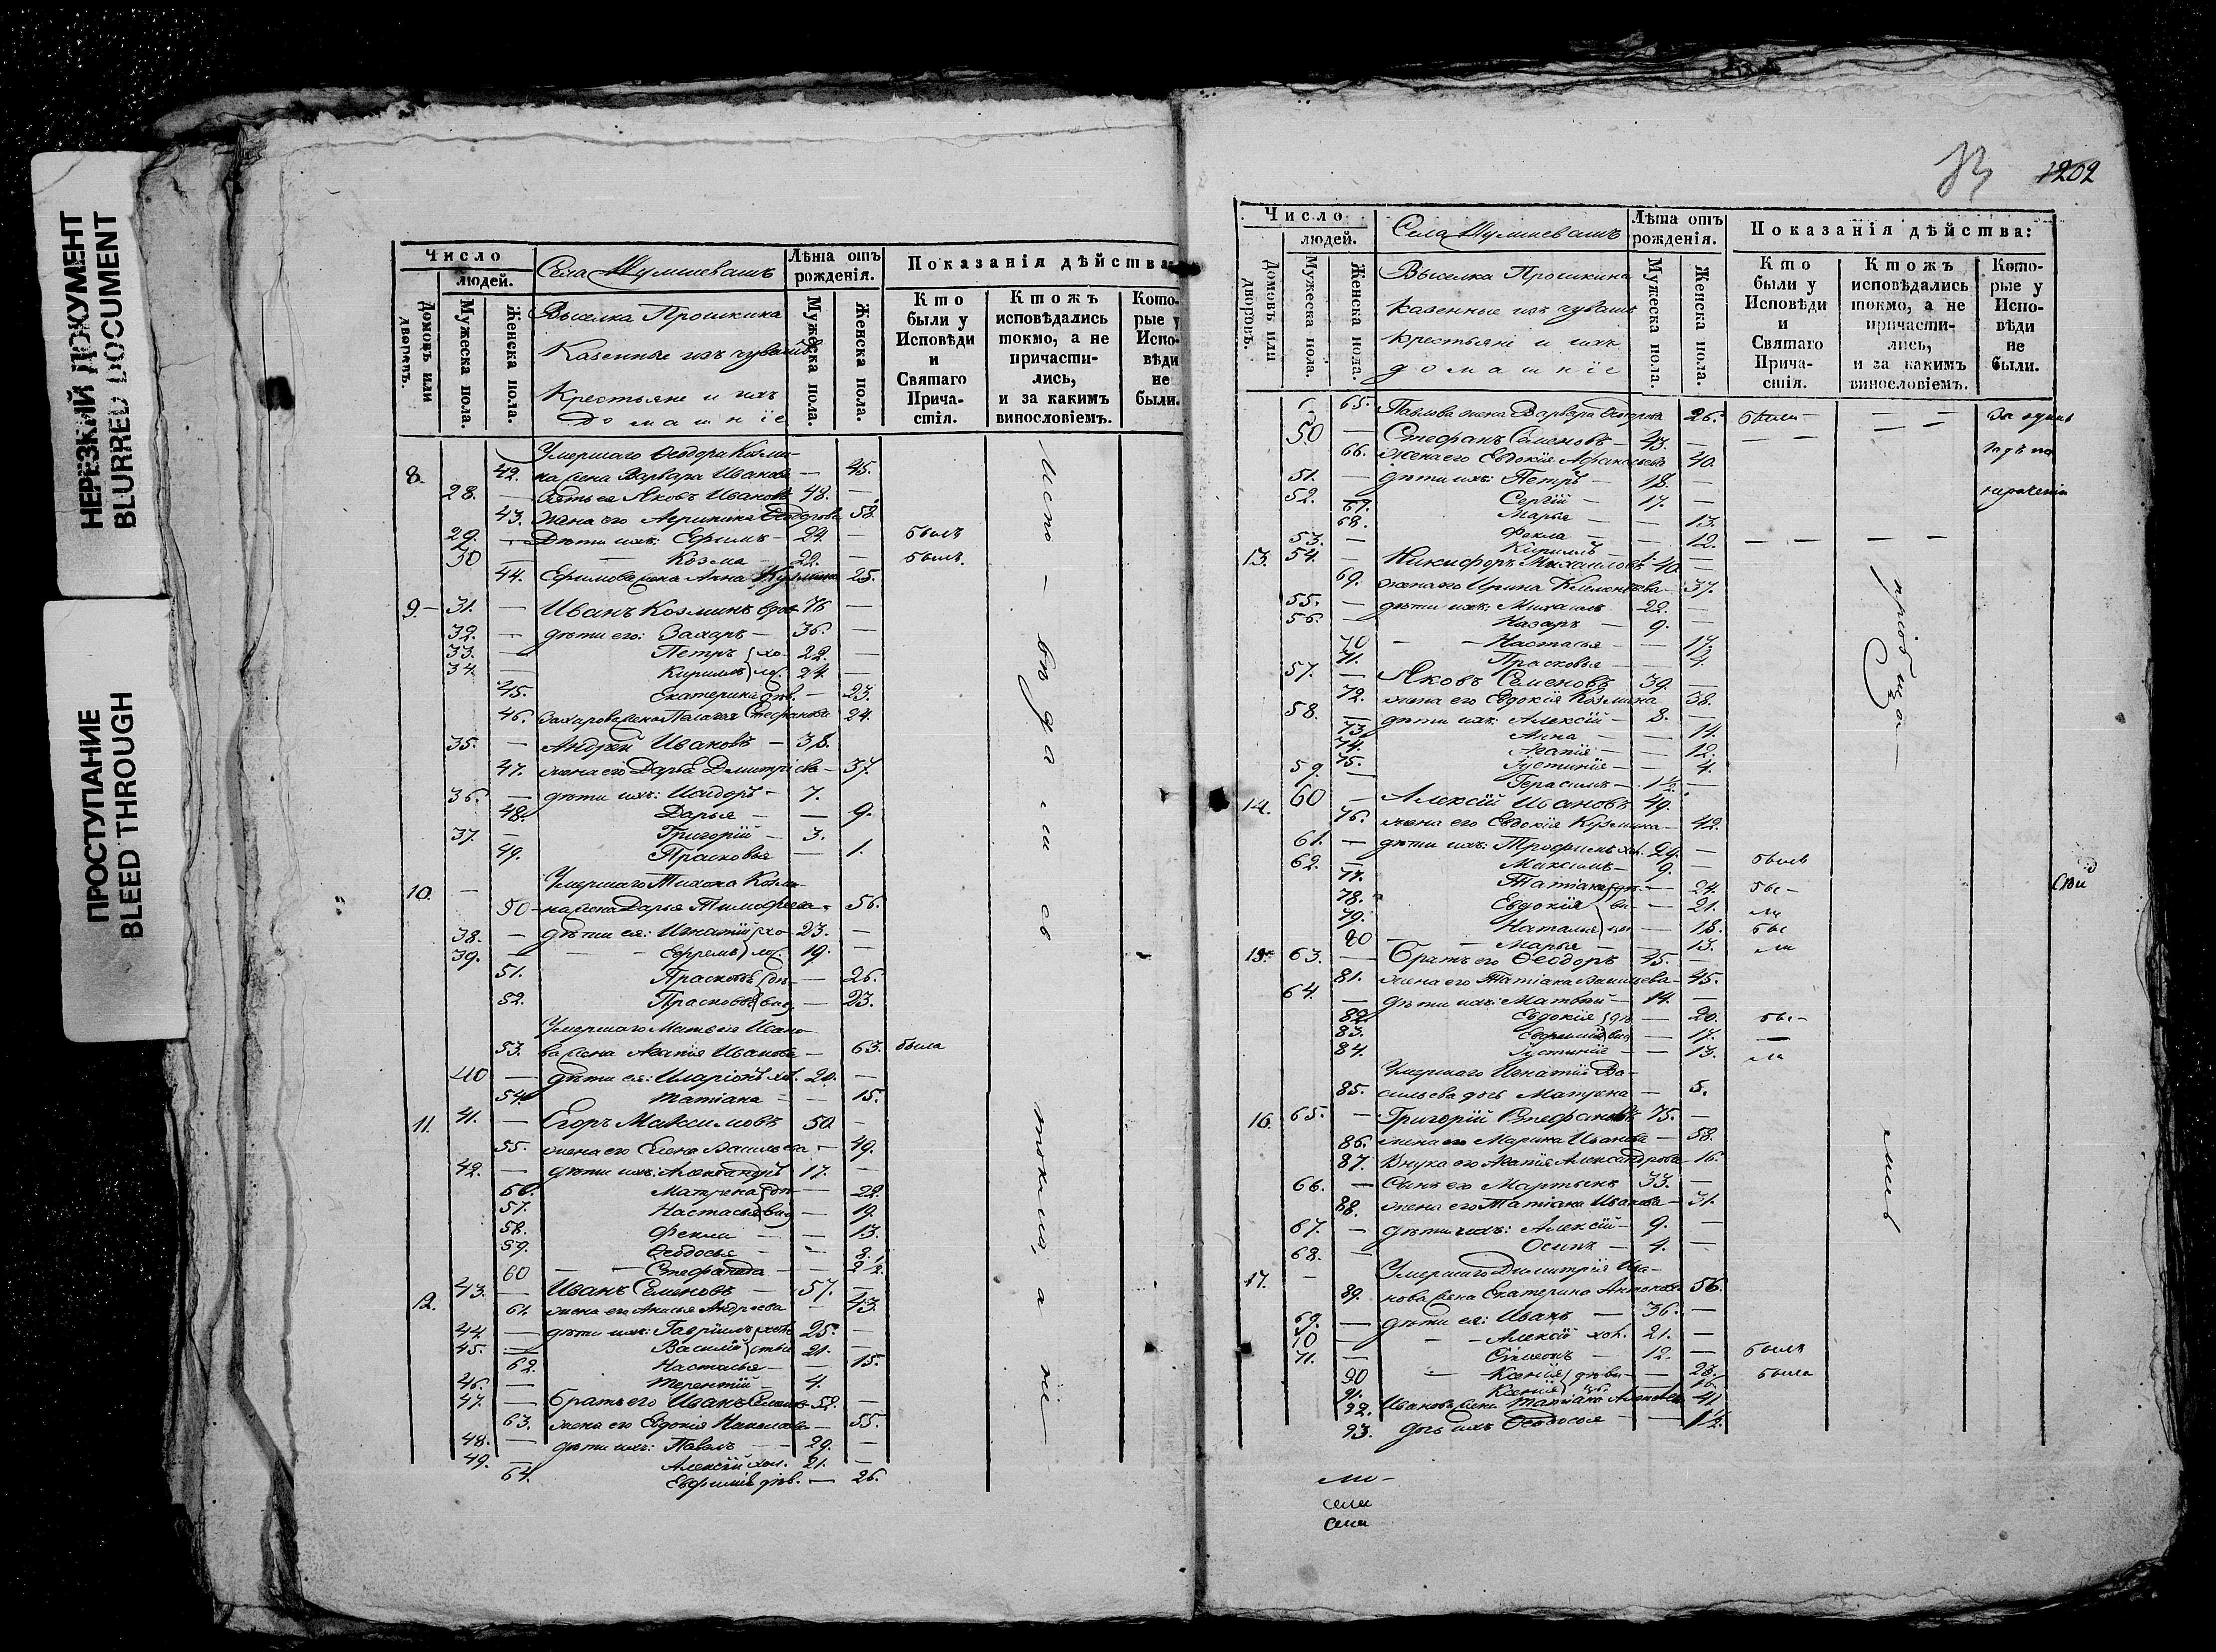 НЕРЕЗКИЙ ДОКУМЕНТ
BLURRED DOCUMENT
ПРОСТУПАНИЕ
BLEED THROUGH
Число
людей.
Домовъ или дворовъ.
Мужеска пола.
Женска пола.
Села Шумшевашъ
Выселка Прошкина
Казенные изъ чувашъ
Крестьяне и ихъ
домашніе
Лѣта отъ рожденія.
Мужеска пола.
Женска пола.
Показанія дѣйства
Кто были у Исповѣди и Святаго Причастія.
Ктожъ исповѣдались токмо, а не причастились, и за какимъ винословіемъ.
Которые у Исповѣди не были.
Умершаго Ѳеодора Козми-
8. 42. на жена Варвара Иванова — 45.
28. — Зять ея Яковъ Ивановъ 48. —
43. Жена его Агрипина Ѳеодорова 53.
29. — Дѣти ихъ: Ефимъ — 24. — былъ
30 — Козма 22. — былъ.
44. Ефимова жена Анна Кузмина 25.
9. — 31. — Иванъ Козминъ вдов 76 —
32. — дѣти его: Захаръ — 36. —
33. — Петръ хо- 22. —
34 — Кириллъ 24. —
45. Екатерина дѣв. — 23.
46. Захарова жена Пелагея Стефанова 24.
35. — Андрей Ивановъ — 38.
47. жена его Дарья Дмитріева — 37.
36. — дѣти ихъ: Исидоръ — 7.
48. Дарья — — 9.
37. — Григорій — 3.
49. Прасковья — 1.
10. — Умершаго Тихона Козми-
50 — на жена Дарья Тимофеева — 56.
38. — дѣти ея: Игнатій хо- 23. —
39. — Ефремъ 19. —
51. Прасковья дѣ- — 26.
52. Прасковья виц. — 23.
Умершаго Матвея Ивано-
53. ва жена Агапія Иванова — 63. была
40 — дѣти ея: Иларіонъ хол. 20. —
54. Татіана — — 15.
11. 41. — Егоръ Максимовъ 50. —
55. жена его Елена Васильева — 49.
42. — дѣти ихъ: Александръ 17. —
56. Матрена дѣ- — 22.
57. Настасья виц — 19.
58. Фекла — — 13.
59. Ѳеодосья — — 8.
60 — Стефанида — — 2½.
12. 43. — Иванъ Семеновъ — 57. —
61. жена его Анисья Андреева — 43.
44. — дѣти ихъ: Гавріилъ холо 25. —
45. — Василій стые 21. —
62. Настасья — — 15.
46. — Терентій — 4.
47. — братъ его Иванъ Семеновъ 52. —
63. жена его Евдокія — 55.
48. — дѣти ихъ: Павелъ — 29. —
49. — Алексій хол. 21. —
64. Евфимія дѣв. — 26.
Испо-
вѣдались
токмо, а
не —
1202
Число
людей.
Домовъ или дворовъ.
Мужеска пола.
Женска пола.
Села Шумшевашъ
Выселка Прошкина
казенные изъ чувашъ
крестьяне и ихъ
домашніе
Лѣта отъ рожденія.
Мужеска пола.
Женска пола.
Показанія дѣйства:
Кто были у Исповѣди и Святаго Причастія.
Ктожъ исповѣдались токмо, а не причастились, и за какимъ винословіемъ.
Которые у Исповѣди не были.
65. Павлова жена Варвара Ѳеодорова 26. были — — —
50 — Стефанъ Семеновъ — 43. — — —
66. жена его Евдокія Афанасьева 40.
51. — дѣти ихъ: Петръ — 18. —
52. — Сергій — 17. —
67. Марья — — 13.
68. Фекла — — 12.
53. — Кириллъ — 1. —
13. 54. — Никифоръ Михайловъ 40. —
69. жена его Ирина Климентьева 37.
55. — дѣти ихъ: Михаилъ 22. —
56. — Назаръ — 9. —
70 — Настасья — — 17.
71. Прасковья — — 4.
57. — Яковъ Семеновъ 39. —
72. жена его Евдокія Козмина 38.
58. — дѣти ихъ: Алексій — 8. —
73. Анна — — 14.
74. Агапія — — 12.
75. Іустинія — — 4.
59. — Герасимъ — 1½. —
14. 60 — Алексій Ивановъ 49.
76. жена его Евдокія Кузмина — 42.
61. — дѣти ихъ: Трофимъ хол. 29. — былъ
62. — Максимъ — 9. —
77. Татіана дѣ- — 24. бы-
78. Евдокія ви- — 21. ли
79. Наталья цы — 18. бы
80 — Марья — — 13. ли
15. 63. — Братъ его Ѳеодоръ 45. —
81. жена его Татіана Васильева — 45.
64. — дѣти ихъ: Матвей — 14. —
82. Евдокія дѣ- — 20. бы-
83. Евфимія виц — 17. —
84. Іустинія — — 13. ли
Умершаго Игнатія Ва-
85. сильева дочь Матрена — 5.
16. 65. — Григорій Стефановъ 75. —
86. жена его Марина Иванова — 58.
87. Внука его Агапія Александрова — 16.
66. — Сынъ его Мартынъ 33. —
88. жена его Татіана Иванова — 31.
67. — дѣти ихъ: Алексій — 9. —
68. — Осипъ — 4. —
17. — Умершаго Димитрія Ива-
89. нова жена Екатерина Антонова 56.
69. — дѣти ея: Иванъ — 36. —
70 — Алексій хол. 21. —
71. — Сімеонъ — 12. — былъ
90 — Ксенія дѣви- — 23. была
91. Ксенія цы — 16.
92. Иванова жена Татіана 41.
93. дочь ихъ Ѳеодосья — — 1½.
пріобща-
лись